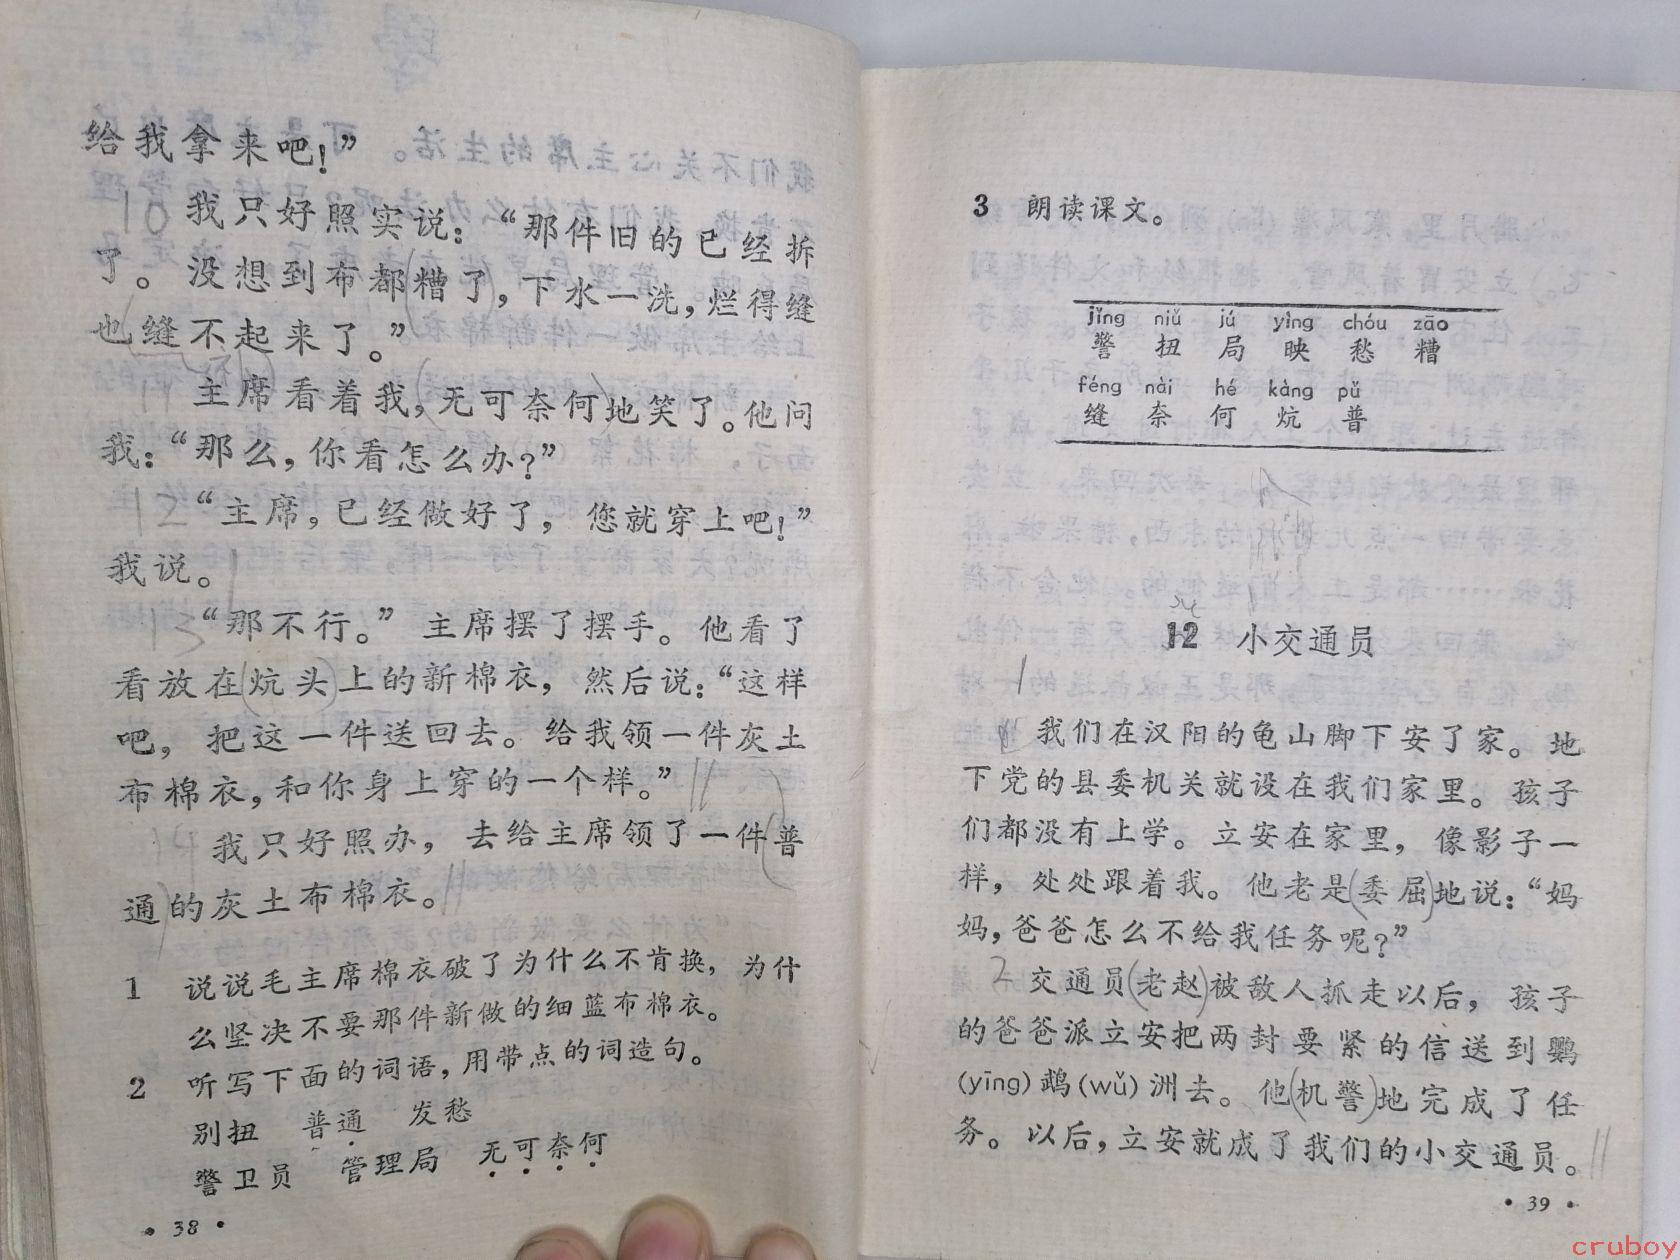 给我拿来吧！”
我只好照实说：“那件旧的已经拆
了。没想到布都糟了，下水一洗，烂得缝
也缝不起来了。”
主席看着我，无可奈何地笑了。他问
我：“那么，你看怎么办？”
“主席，已经做好了，您就穿上吧！”
我说。
“那不行。”主席摆了摆手。他看了
看放在炕头上的新棉衣，然后说：“这样
吧，把这一件送回去。给我领一件灰土
布棉衣，和你身上穿的一个样。”
我只好照办，去给主席领了一件普
通的灰土布棉衣。
1 说说毛主席棉衣破了为什么不肯换，为什
么坚决不要那件新做的细蓝布棉衣。
2 听写下面的词语，用带点的词造句。
别扭 普通 发愁
警卫员 管理局 无可奈何
·38·
3 朗读课文。
jǐng niǔ jú yìng chóu zāo
警 扭 局 映 愁 糟
féng nài hé kàng pǔ
缝 奈 何 炕 普
12 小交通员
我们在汉阳的龟山脚下安了家。地
下党的县委机关就设在我们家里。孩子
们都没有上学。立安在家里，像影子一
样，处处跟着我。他老是委屈地说：“妈
妈，爸爸怎么不给我任务呢？”
交通员老赵被敌人抓走以后，孩子
的爸爸派立安把两封要紧的信送到鹦
(yīng)鹉(wǔ)洲去。他机警地完成了任
务。以后，立安就成了我们的小交通员。
·39·
cruboy